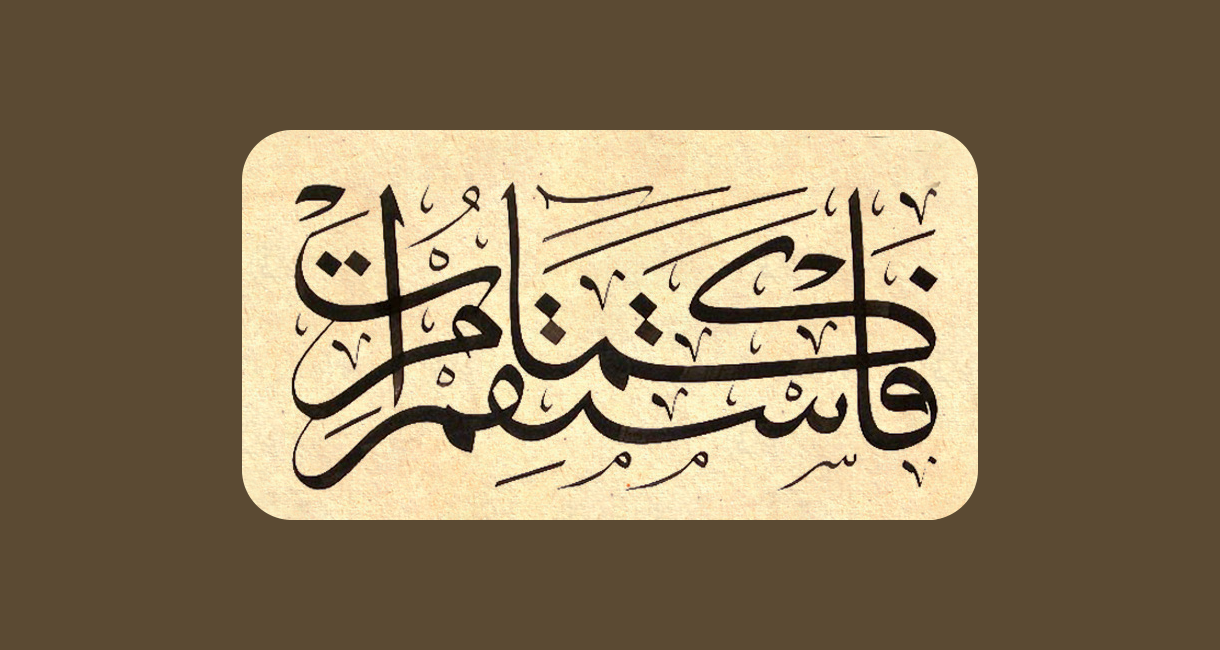 فَاسْتَقِمْ كَمَا أُمِرْتَ